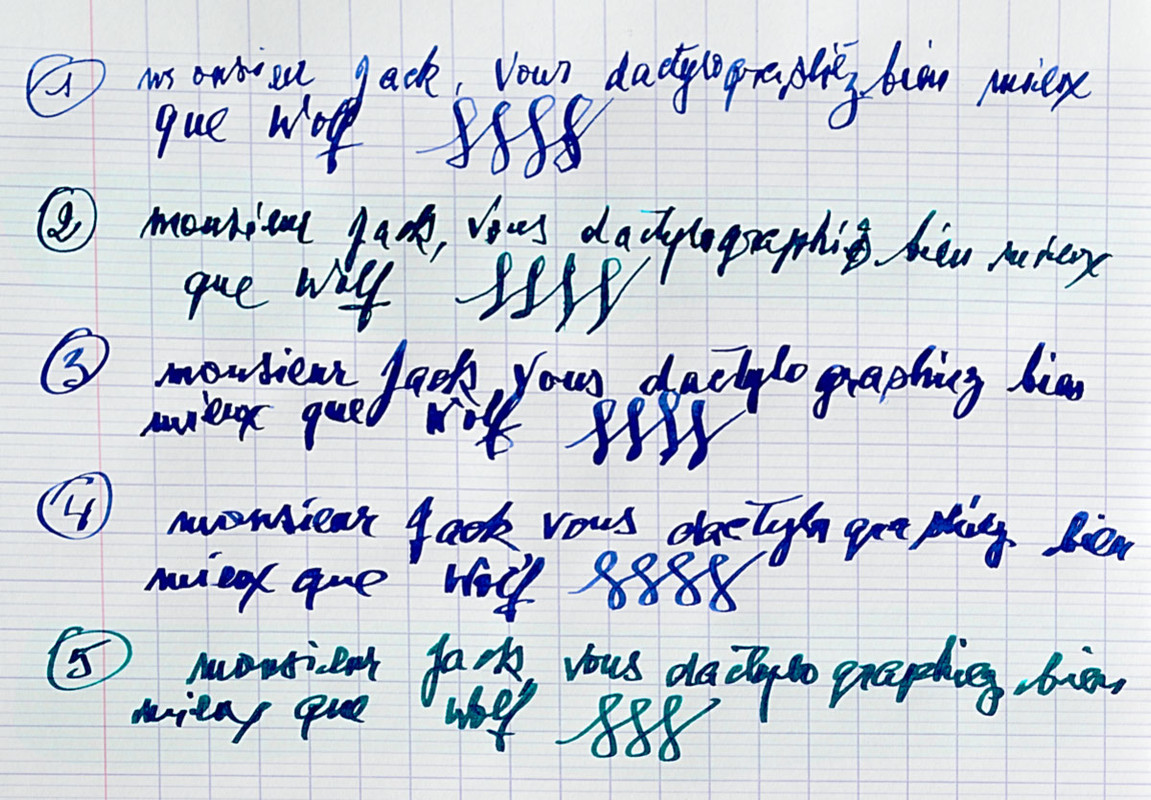 ① monsieur Jack, vous dactylographiez bien mieux
que Wolf
② monsieur Jack, vous dactylographiez bien mieux
que Wolf
③ monsieur Jack, vous dactylographiez bien
mieux que Wolf
④ monsieur Jack vous dactylographiez bien
mieux que Wolf
⑤ monsieur Jack, vous dactylographiez bien
mieux que Wolf